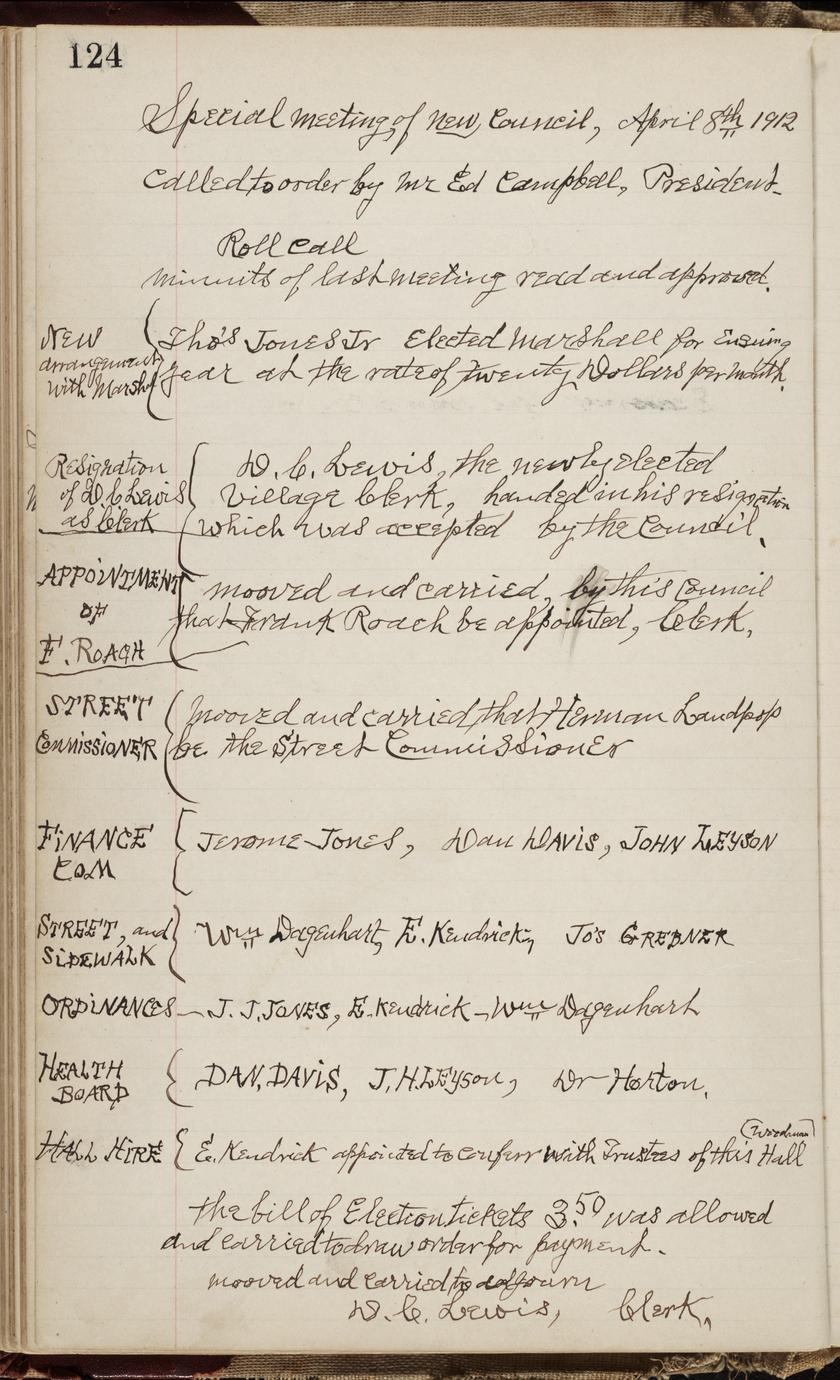 124
Special meeting of new Council, April 8th 1912
Called to order by Mr Ed Campbell, President
Roll Call
minnits of last meeting read and approved.
New
arrangement
with Marshl
Tho's Jones Jr Elected Marshall for Ensuing
year at the rate of twenty Dollars per month.
Resignation
of D C Lewis
as Clerk
D. C. Lewis, the newly elected
Village Clerk, handed in his resignation
which was accepted by the Council.
APPOINTMENT
OF
F. ROACH
mooved and carried, by this Council
that Frank Roach be appointed, Clerk.
STREET
COMMISSIONER
Mooved and carried that Herman Landpop
be the Street Commissioner
FINANCE
COM
Jerome Jones, Dan DAVIS, JOHN LEYSON
STREET, and
SIDEWALK
Wm Dagenhart, E. Kendrick, JO'S GREBNER
ORDINANCES - J. J. JONES, E. Kendrick - Wm Dagenhart
HEALTH
BOARD
DAN. DAVIS, J. H. LEYSON, Dr Horton.
HALL HIRE
E. Kendrick appointed to conferr with Trustees of this (Woodman) Hall
the bill of Election tickets 3.50 was allowed
and carried to draw order for payment.
mooved and carried to adjourn
D. C. Lewis, Clerk.